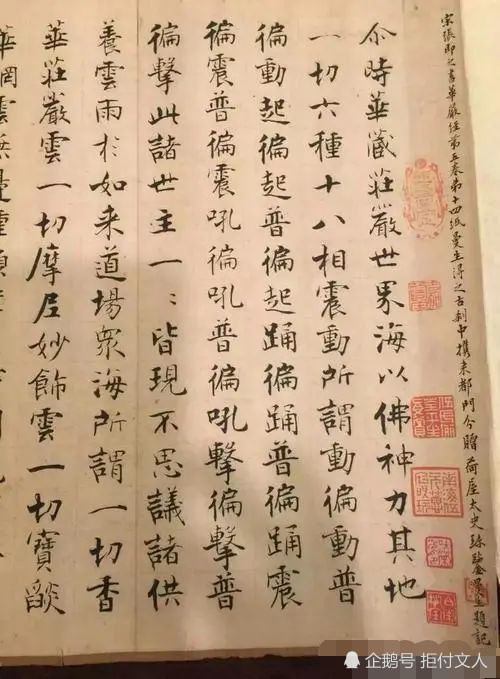 宋張即之書華嚴經第五卷第十四紙曼生得之古刹中攜来都門今贈荷屋太史曼生題記
尒時華藏莊嚴世界海以佛神力其地
一切六種十八相震動所謂動徧動普
徧動起徧起普徧起踊徧踊普徧踊震
徧震普徧震吼徧吼普徧吼擊徧擊普
徧擊此諸世主一〻皆現不思議諸供
養雲雨於如来道場衆海所謂一切香
華莊嚴雲一切摩尼妙飾雲一切寶燄
華網雲
企鹅号 拒付文人